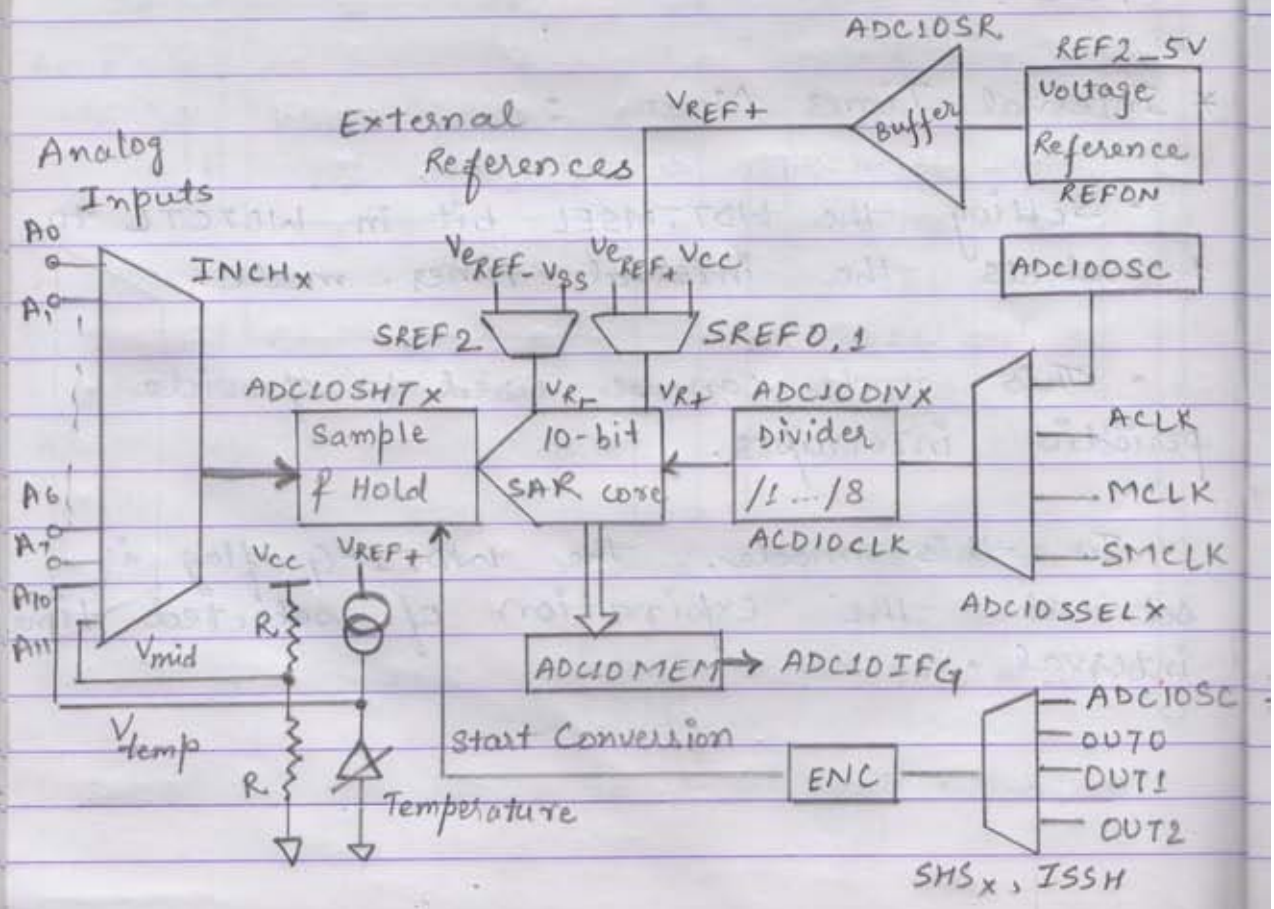 ADC10SR
REF2_5V
Voltage
Reference
REFON
Buffer
VREF+
External
References
Analog
Inputs
A0
A1
A6
A7
A10
A11
INCHx
VeREF-
VSS
VeREF+
VCC
SREF2
SREF0,1
ADC10OSC
ADC10SHTx
Sample
& Hold
VR-
VR+
10-bit
SAR core
ADC10DIVx
Divider
/1.../8
ACD10CLK
ACLK
MCLK
SMCLK
ADC10SSELX
VCC
VREF+
R
Vmid
Vtemp
R
Temperature
ADC10MEM
ADC10IFG
Start Conversion
ENC
ADC10SC
OUT0
OUT1
OUT2
SHSx, ISSH